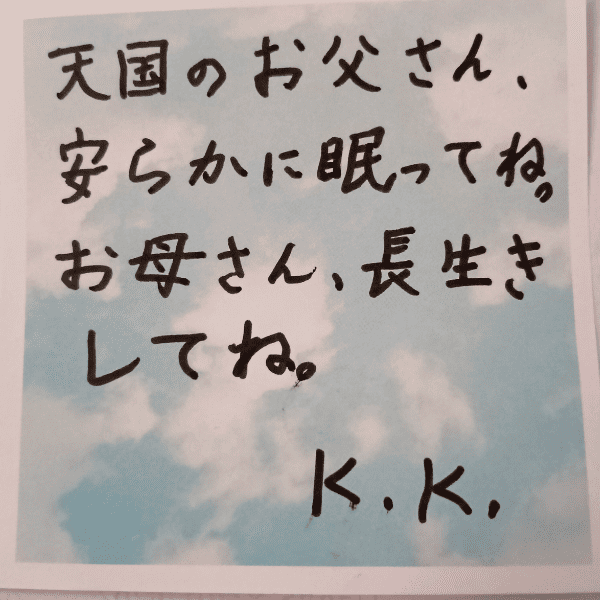 天国のお父さん、
安らかに眠ってね。
お母さん、長生き
してね。
K.K.